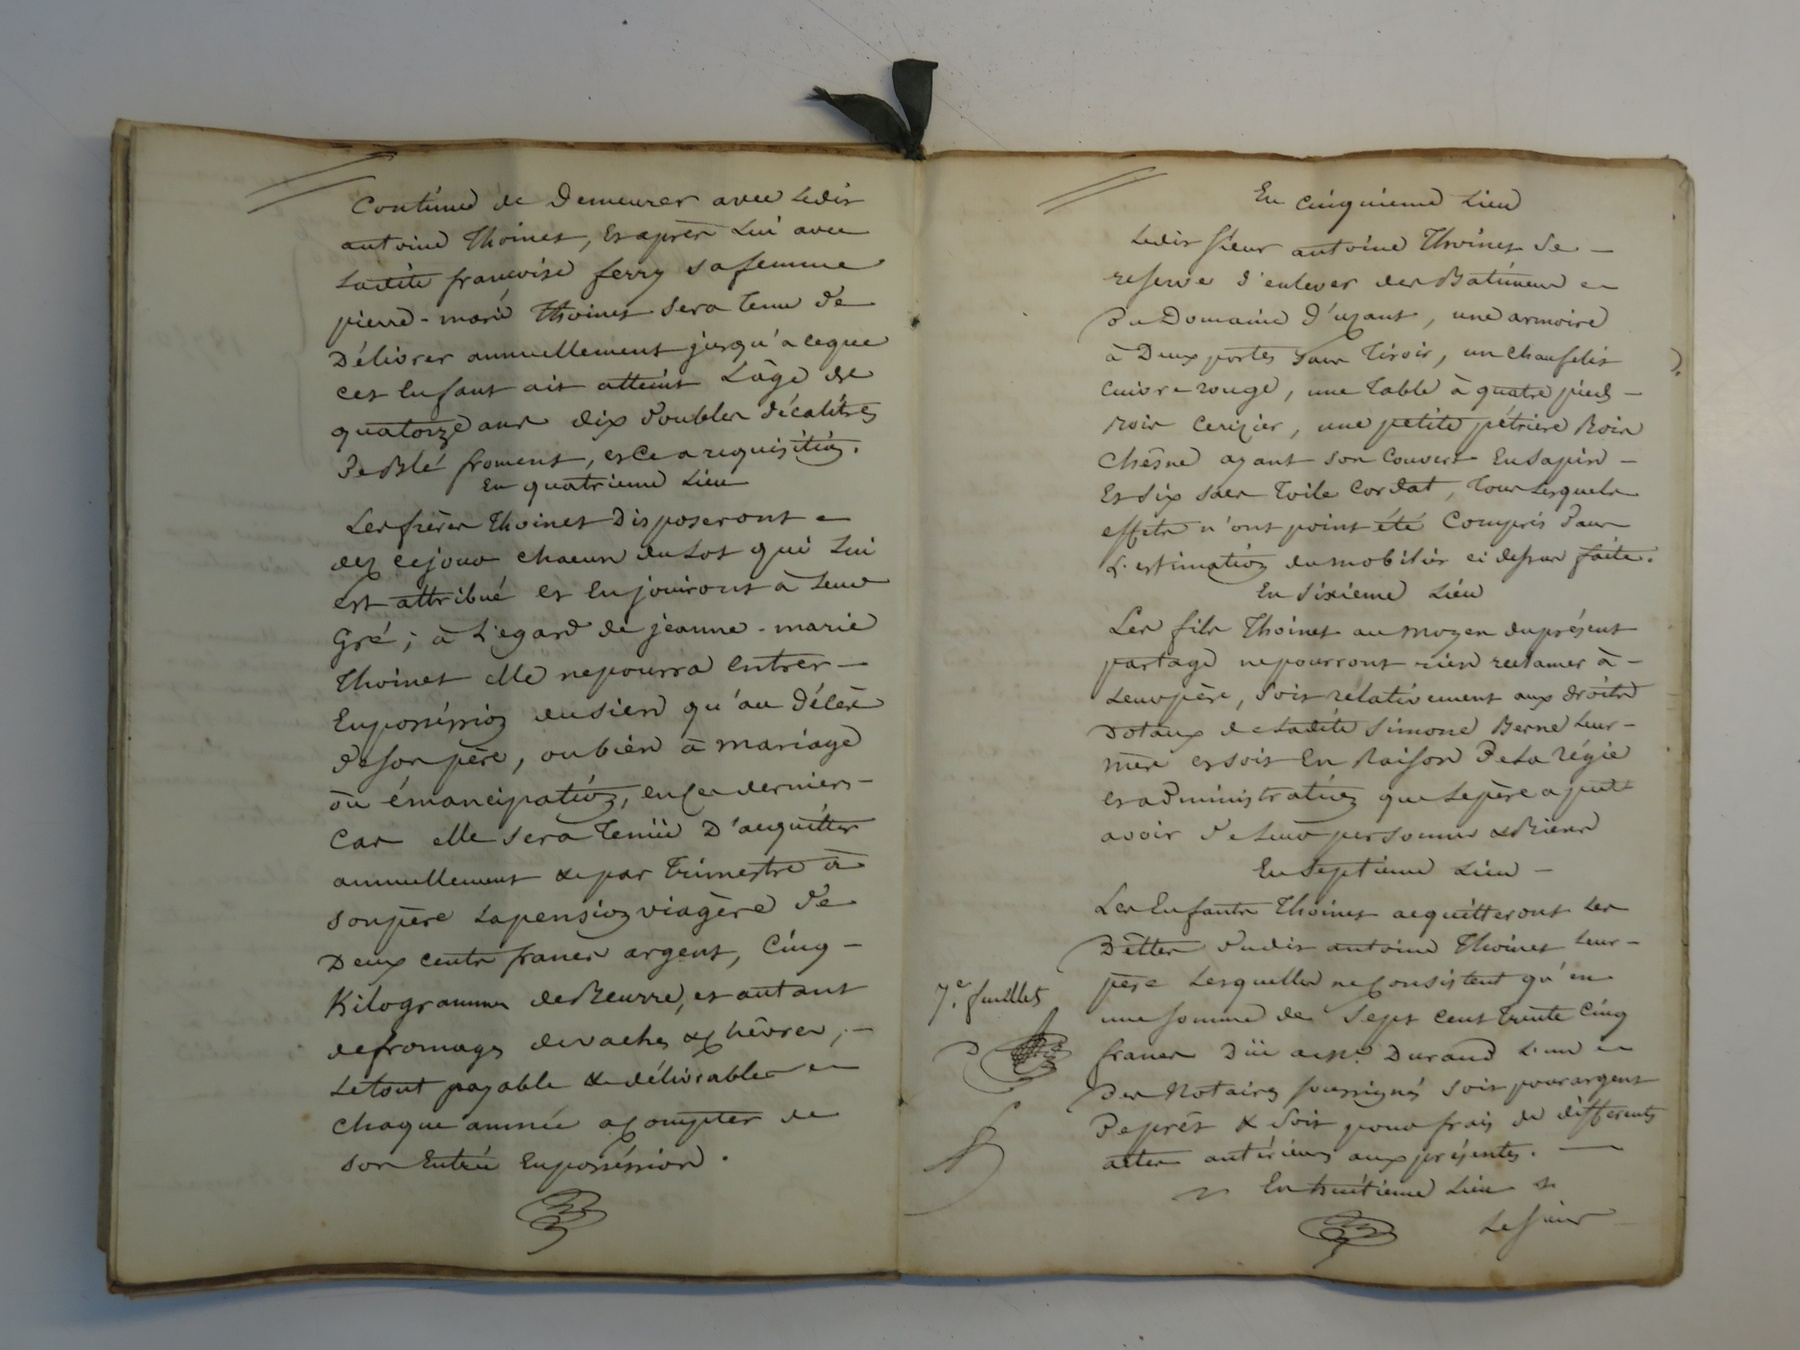 continue de demeurer avec ledit
antoine Thoinet, et après lui avec
ladite françoise ferry sa femme
pierre-marie Thoinet sera tenu de
délivrer annuellement jusqu'a ceque
cet enfant ait atteint l'âge de
quatorze ans dix doubles décalitres
de blé froment, et ce a requisition.
En quatrieme Lieu
Les frères Thoinet disposeront
dez cejour chacun du lot qui lui
est attribué et en jouiront à leur
Gré ; à l'egard de jeanne-marie
Thoinet elle nepourra entrer —
en possession du sien qu'au décès
de son père, ou bien à mariage
ou émancipation, en ces derniers —
cas elle sera tenüe d'acquitter
annuellement & par trimestre à
son père la pension viagère de
Deux cents francs argent, cinq —
Kilogrammes de Beurre, et autant
de fromages de vaches & chèvres, —
Le tout payable & délivrable en
chaque année a compter de
son entrée en possession.
En cinquieme Lieu
Ledit sieur antoine Thoinet se —
reserve d'enlever des Batimens
du Domaine d'uzant, une armoire
à Deux portes sans tiroir, un chaufelit
cuivre rouge, une table à quatre pieds —
Bois cerizier, une petite pétrière Bois
chesne ayant son couvert en sapin —
Et dix sacs toile cordat, tous lesquels
effets n'ont point été compris dans
l'estimation du mobilier ci dessus faite.
En sixieme Lieu
Les fils Thoinet au moyen du présent
partage nepourront rien reclamer à —
leur père, soit rélativement aux droits
Dotaux de ladite Simone Berne leur —
mère et soit en Raison de la régie
et administration que le père a put
avoir de leurs personnes & Biens
En septieme Lieu —
Les enfants Thoinet acquitteront les
Dettes dudit antoine Thoinet leur —
père lesquelles ne consistent qu'en
une somme de sept cent trente cinq
francs Düe a Me. Durand l'un
des Notaires soussignés soit pour argent
de prêt & soit pour frais de différents
actes antérieurs aux présentes. —
7e. feuillet
En huitieme Lieu
Le sieur